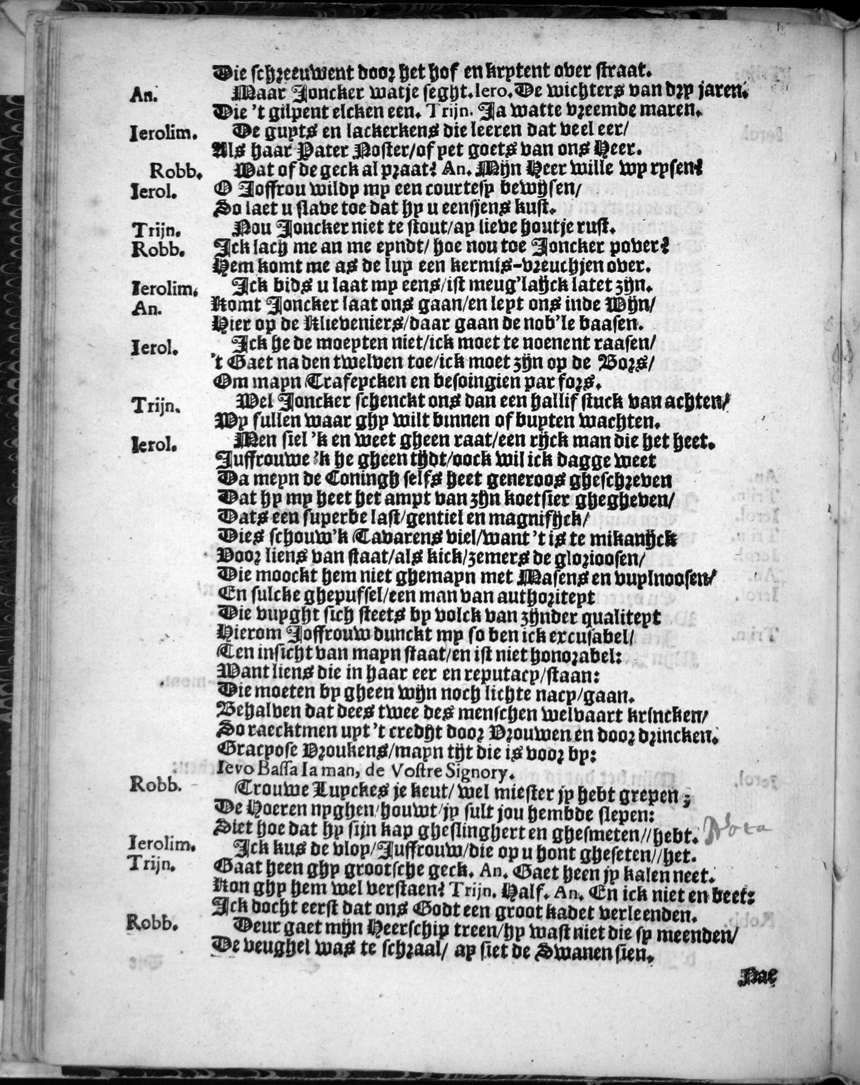 Die schreeuwent door het hof en krytent over straat.
An. Maar Joncker watje seght. Iero. De wichters van dry jaren.
Die 't gilpent elcken een. Trijn. Ja watte vreemde maren.
Ierolim. De guyts en lackerkens die leeren dat veel eer/
Als haar Pater Noster/of yet goets van ons Heer.
Robb. Wat of de geck al praat? An. Mijn Heer wille wy rysen?
Ierol. O Joffrou wildy my een courtesy bewijsen/
So laet u slave toe dat hy u eensjens kust.
Trijn. Nou Joncker niet te stout/ay lieve houtje rust.
Robb. Ick lach me an me eyndt/ hoe nou toe Joncker pover?
Hem komt me as de luy een kermis-vreuchjen over.
Ierolim. Ick bids u laat my eens/ist meug'laijck latet zijn.
An. Komt Joncker laat ons gaan/en leyt ons inde Wijn/
Hier op de Klieveniers/daar gaan de nob'le baasen.
Ierol. Ick he de moeyten niet/ick moet te noenent raasen/
't Gaet na den twelven toe/ick moet zijn op de Bors/
Om mayn Trafeycken en besoingien par fors.
Trijn. Wel Joncker schenckt ons dan een hallif stuck van achten/
Wy sullen waar ghy wilt binnen of buyten wachten.
Ierol. Men siel 'k en weet gheen raat/een rijck man die het heet.
Juffrouwe 'k he gheen tijdt/oock wil ick dagge weet
Da meyn de Coningh selfs heet generoos gheschreven
Dat hy my heet het ampt van zijn koetsier ghegheven/
Dats een superbe last/gentiel en magnifijck/
Dies schouw'k Tavarens viel/want 't is te mikanijck
Voor liens van staat/als kick/zemers de glorioosen/
Die moockt hem niet ghemayn met Masens en vuylnoosen/
En sulcke ghepufsel/een man van authoriteyt
Die vuyght sich steets by volck van zijnder qualiteyt
Hierom Joffrouw dunckt my so ben ick excusabel/
Ten insicht van mayn staat/en ist niet honorabel:
Want liens die in haar eer en reputacy/staan:
Die moeten by gheen wijn noch lichte nacy/gaan.
Behalven dat dees twee des menschen welvaart krincken/
So raecktmen uyt 't credijt door Vrouwen en door drincken.
Gracyose Vroukens/mayn tijt die is voor by:
Ievo Bassa la man, de Vostre Signory.
Robb. Trouwe Luyckes je keut/ wel miester jy hebt grepen;
De Hoeren nyghen/houwt/jy sult jou hembde slepen:
Siet hoe dat hy sijn kap gheslinghert en ghesmeten//hebt. Nota
Ierolim. Ick kus de vloy/Juffrouw/die op u hont gheseten//het.
Trijn. Gaat heen ghy grootsche geck. An. Gaet heen jy kalen neet.
Kon ghy hem wel verstaen? Trijn. Half. An. En ick niet en beet:
Ick docht eerst dat ons Godt een groot kadet verleenden.
Robb. Deur gaet mijn Heerschip treen/hy wast niet die sy meenden/
De veughel was te schraal/ ay siet de Swanen sien.
Nae